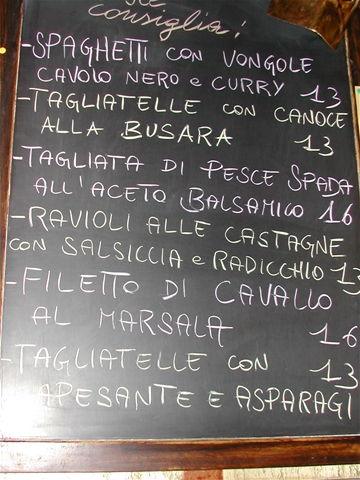 consiglia!
-SPAGHETTI CON VONGOLE
CAVOLO NERO e CURRY 13
-TAGLIATELLE CON CANOCE
ALLA BUSARA 13
-TAGLIATA DI PESCE SPADA
ALL'ACETO BALSAMICO 16
-RAVIOLI ALLE CASTAGNE
CON SALSICCIA e RADICCHIO 13
-FILETTO DI CAVALLO
AL MARSALA 16
-TAGLIATELLE CON 13
APESANTE E ASPARAGI